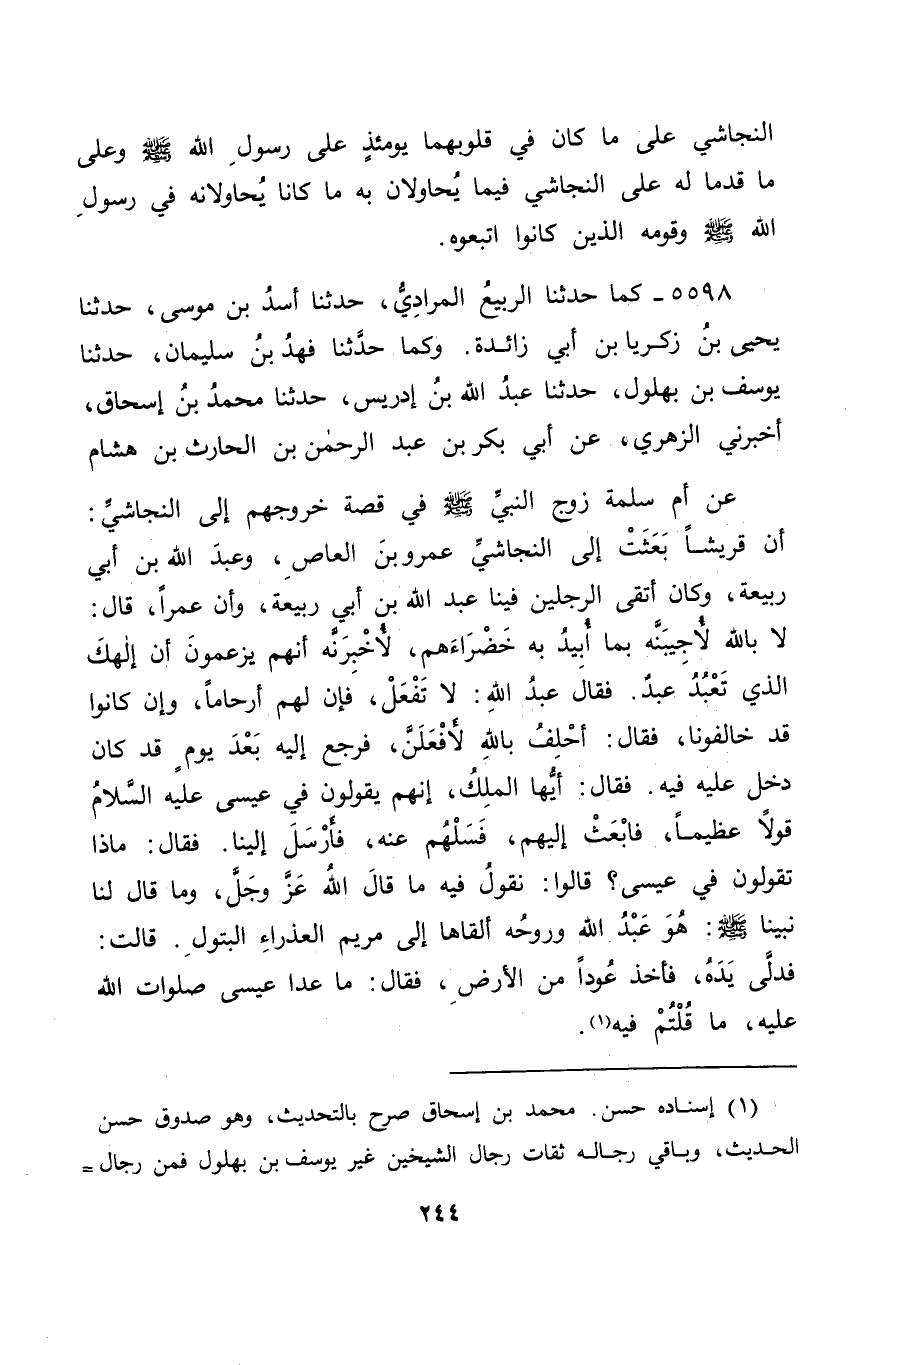 النجاشي على ما كان في قلوبهما يومئذٍ على رسولِ الله ﷺ وعلى
ما قدما له على النجاشي فيما يُحاولان به ما كانا يُحاولانه في رسولِ
الله ﷺ وقومه الذين كانوا اتبعوه.
٥٥٩٨ـ كما حدثنا الربيعُ المراديُّ، حدثنا أسدُ بن موسى، حدثنا
يحيى بنُ زكريا بن أبي زائدة. وكما حدَّثنا فهدُ بنُ سليمان، حدثنا
يوسف بن بهلول، حدثنا عبدُ الله بنُ إدريس، حدثنا محمدُ بنُ إسحاق،
أخبرني الزهري، عن أبي بكر بن عبد الرحمٰن بن الحارث بن هشام
عن أم سلمة زوج النبيِّ ﷺ في قصة خروجهم إلى النجاشيِّ:
أن قريشاً بَعَثَتْ إلى النجاشيِّ عمرو بنَ العاصِ، وعبدَ الله بن أبي
ربيعة، وكان أتقى الرجلين فينا عبد الله بن أبي ربيعة، وأن عمراً، قال:
لا بالله لُأجِيبَنَّه بما أُبِيدُ به خَضْرَاءَهم، لُأخْبِرَنَّه أنهم يزعمونَ أن إلٰهكَ
الذي تَعْبُدُ عبدٌ. فقال عبدُ اللهِ: لا تَفْعَلْ، فإن لهم أرحاماً، وإن كانوا
قد خالفونا، فقال: أحْلِفُ باللهِ لَأفْعَلَنَّ، فرجع إليه بَعْدَ يومٍ قد كان
دخل عليه فيه. فقال: أيُّها الملِكُ، إنهم يقولون في عيسى عليه السَّلامُ
قولاً عظيماً، فابْعَثْ إليهم، فَسَلْهُم عنه، فأَرْسَلَ إلينا. فقال: ماذا
تقولون في عيسى؟ قالوا: نقولُ فيه ما قالَ اللهُ عَزَّ وجَلَّ، وما قال لنا
نبينا ﷺ: هُوَ عَبْدُ الله وروحُه ألقاها إلى مريم العذراءِ البتولِ. قالت:
فدلَّى يَدَهُ، فأخذ عُوداً من الأرضِ، فقال: ما عدا عيسى صلوات الله
عليه، ما قُلْتُمْ فيه(١).
(١) إسناده حسن. محمد بن إسحاق صرح بالتحديث، وهو صدوق حسن
الحديث، وباقي رجاله ثقات رجال الشيخين غير يوسف بن بهلول فمن رجال =
٢٤٤